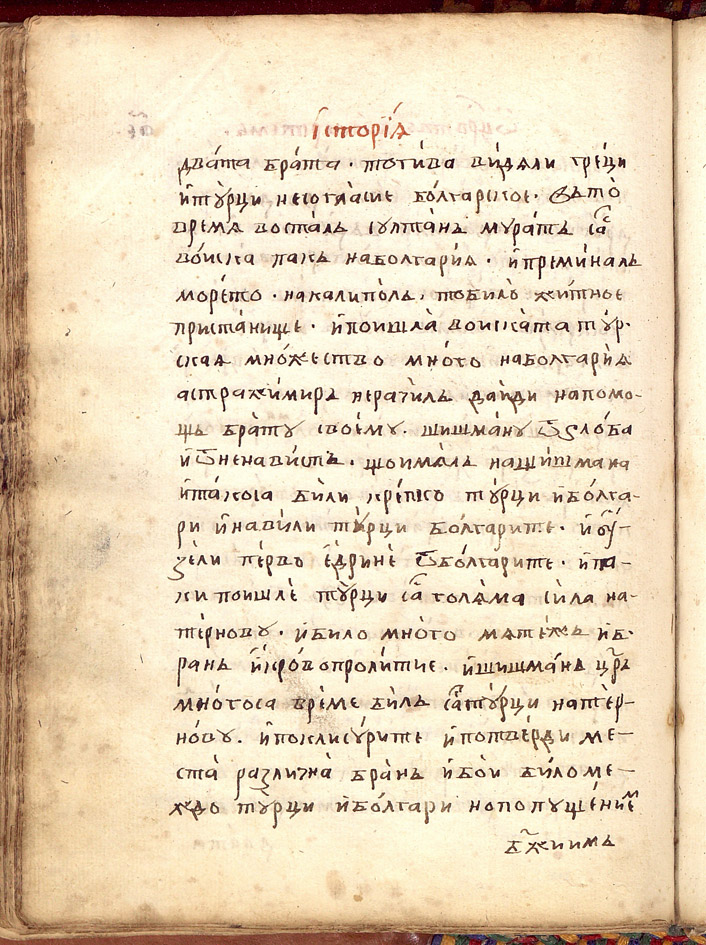 їсторїѧ
двата брата · тогива видѧли греци
и турци несогласие болгарское · въ то
времѧ восталъ султанъ муратъ са
воиска пакъ на болгариѧ · и преминалъ
морето · на калиполъ · то било житное
пристанище · и поишла воиската тур-
скаѧ множество много на болгариѧ
а стражимиръ не рачилъ да иди на помо-
щь брату своему · шишману ѿ злоба
и ѿ ненависть · що ималъ на шишмана
и такоса били крепко турци и болга-
ри и навили турци болгарите · и оу-
зели перво едрине ѿ болгарите · и па-
ки поишле турци са голѧма сила на
терновъ · и било много мѧтежъ и б-
рань и кровопролитие · и шишманъ цръ
многоса време билъ са турци на тер-
нову · и по клисурите и по тверди ме-
ста различна брань и бои било ме-
ждо турци и болгари но попущением
бжиимъ